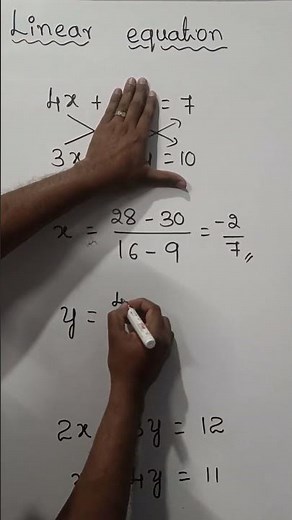 Linear equation
4x + = 7
3x = 10
x = 28 - 30 / 16 - 9 = -2 / 7 //
y = 4
2x y = 12
4y = 11